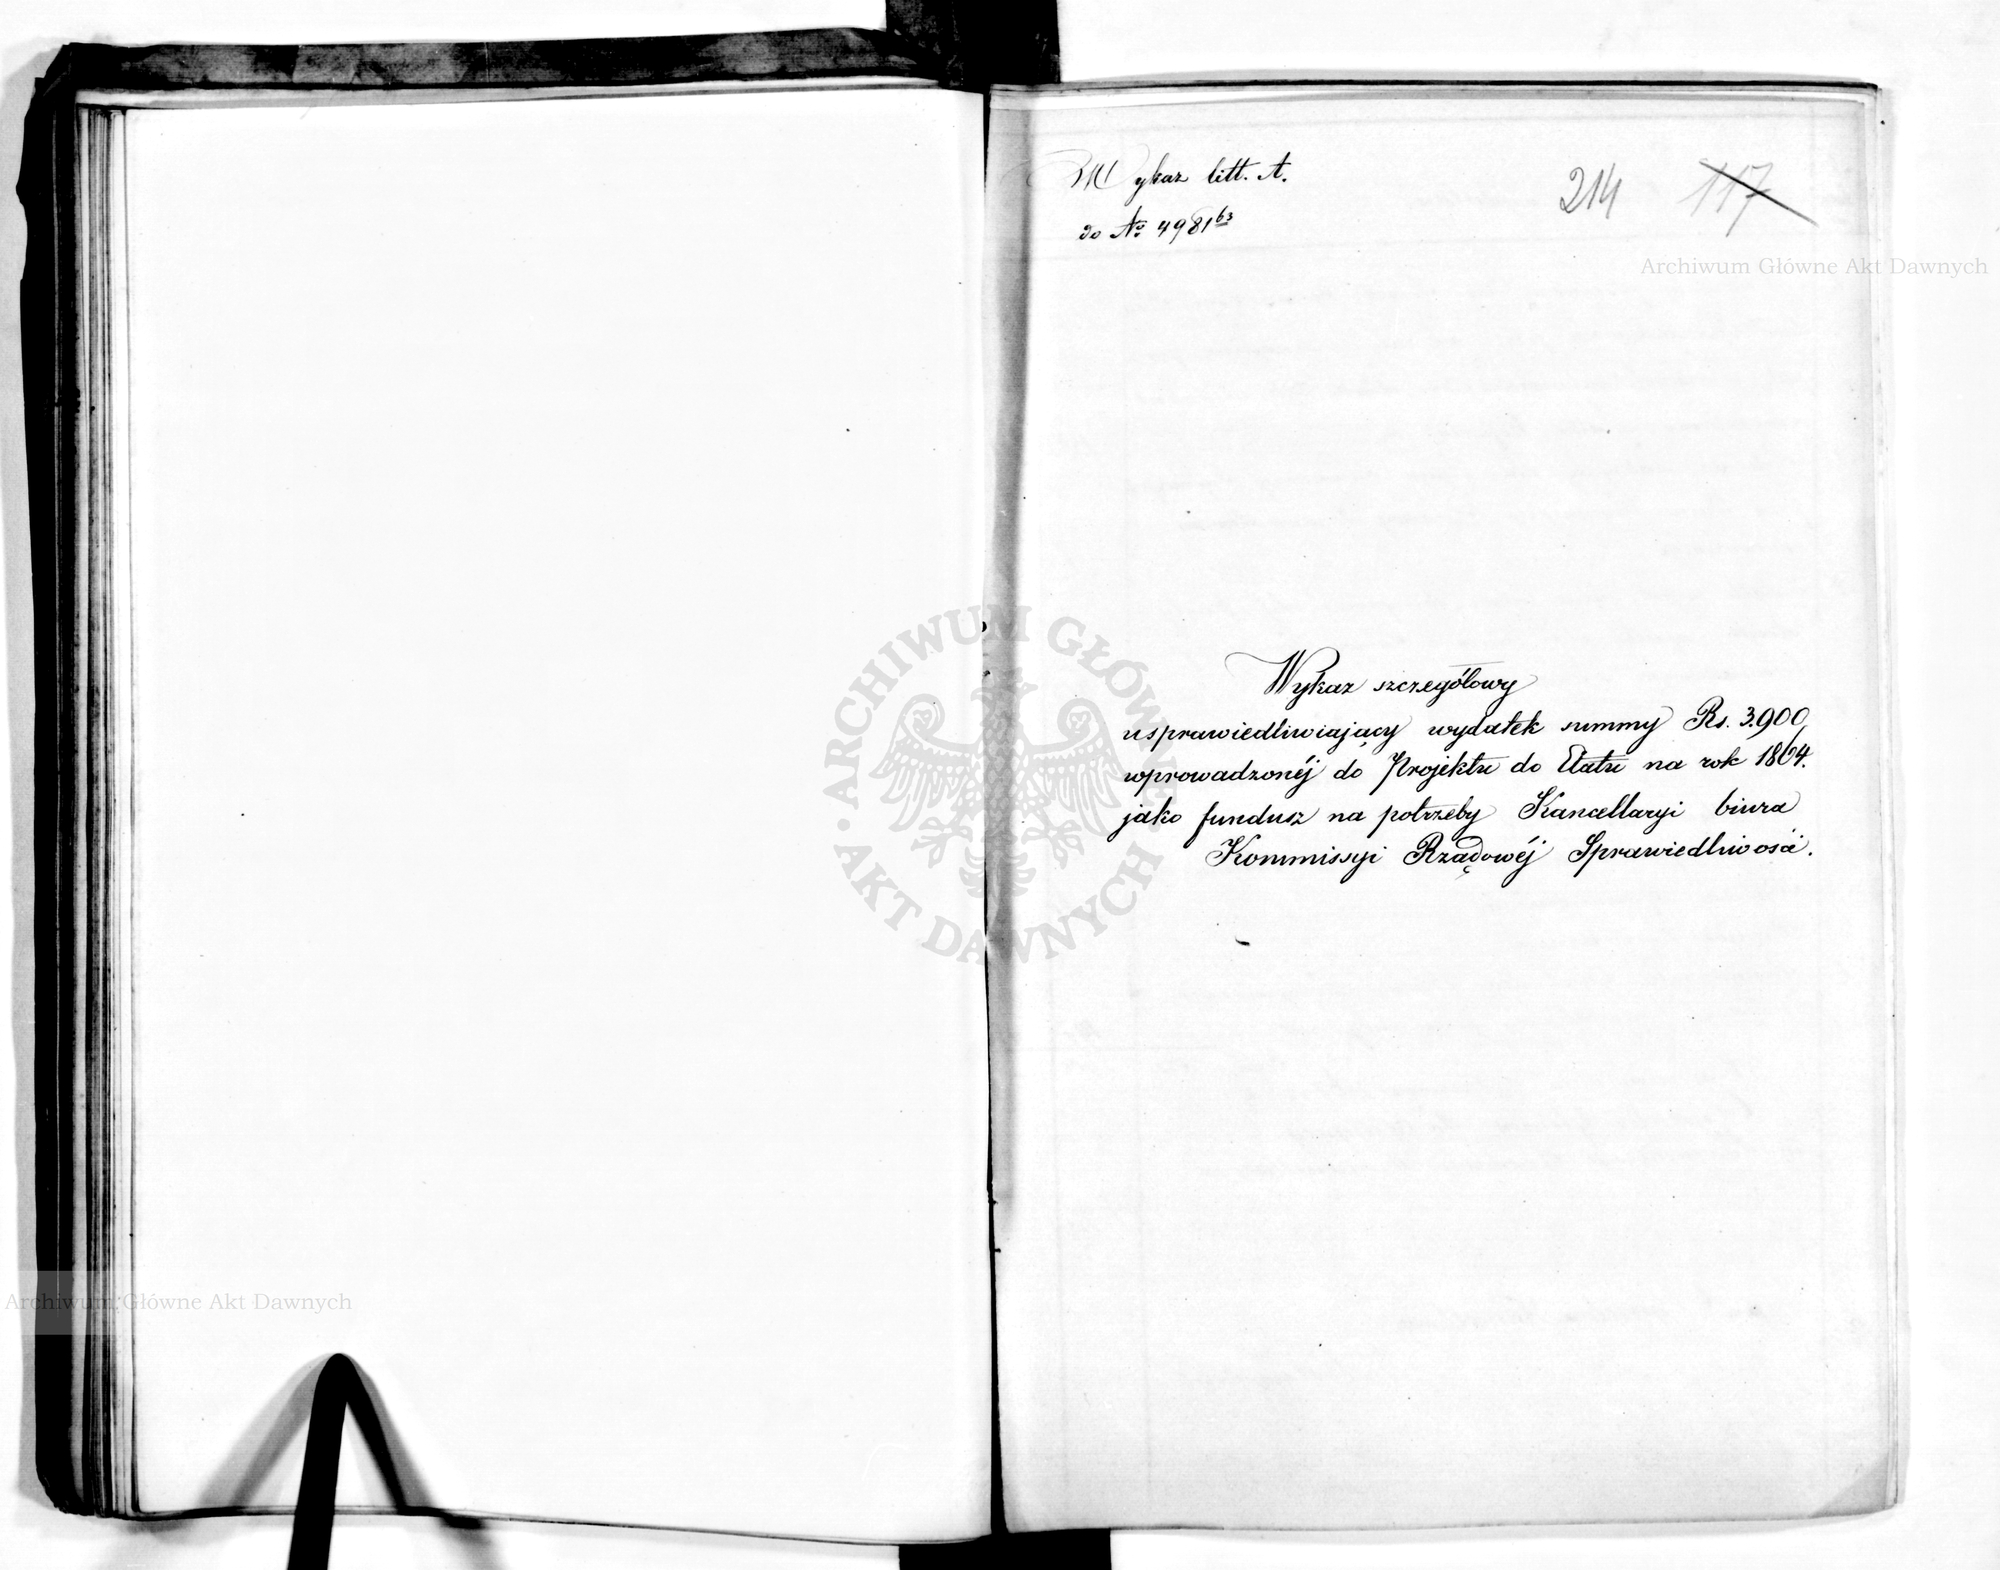 Wykaz litt. A.
do No 4981 63
214 117
Archiwum Główne Akt Dawnych
ARCHIWUM GŁÓWNE AKT DAWNYCH
Wykaz szczegółowy
usprawiedliwiający wydatek summy Rs. 3.900,
wprowadzonéj do Projektu do Etatu na rok 1864.
jako fundusz na potrzeby Kancellaryi biura
Kommissyi Rządowéj Sprawiedliwości.
Archiwum Główne Akt Dawnych